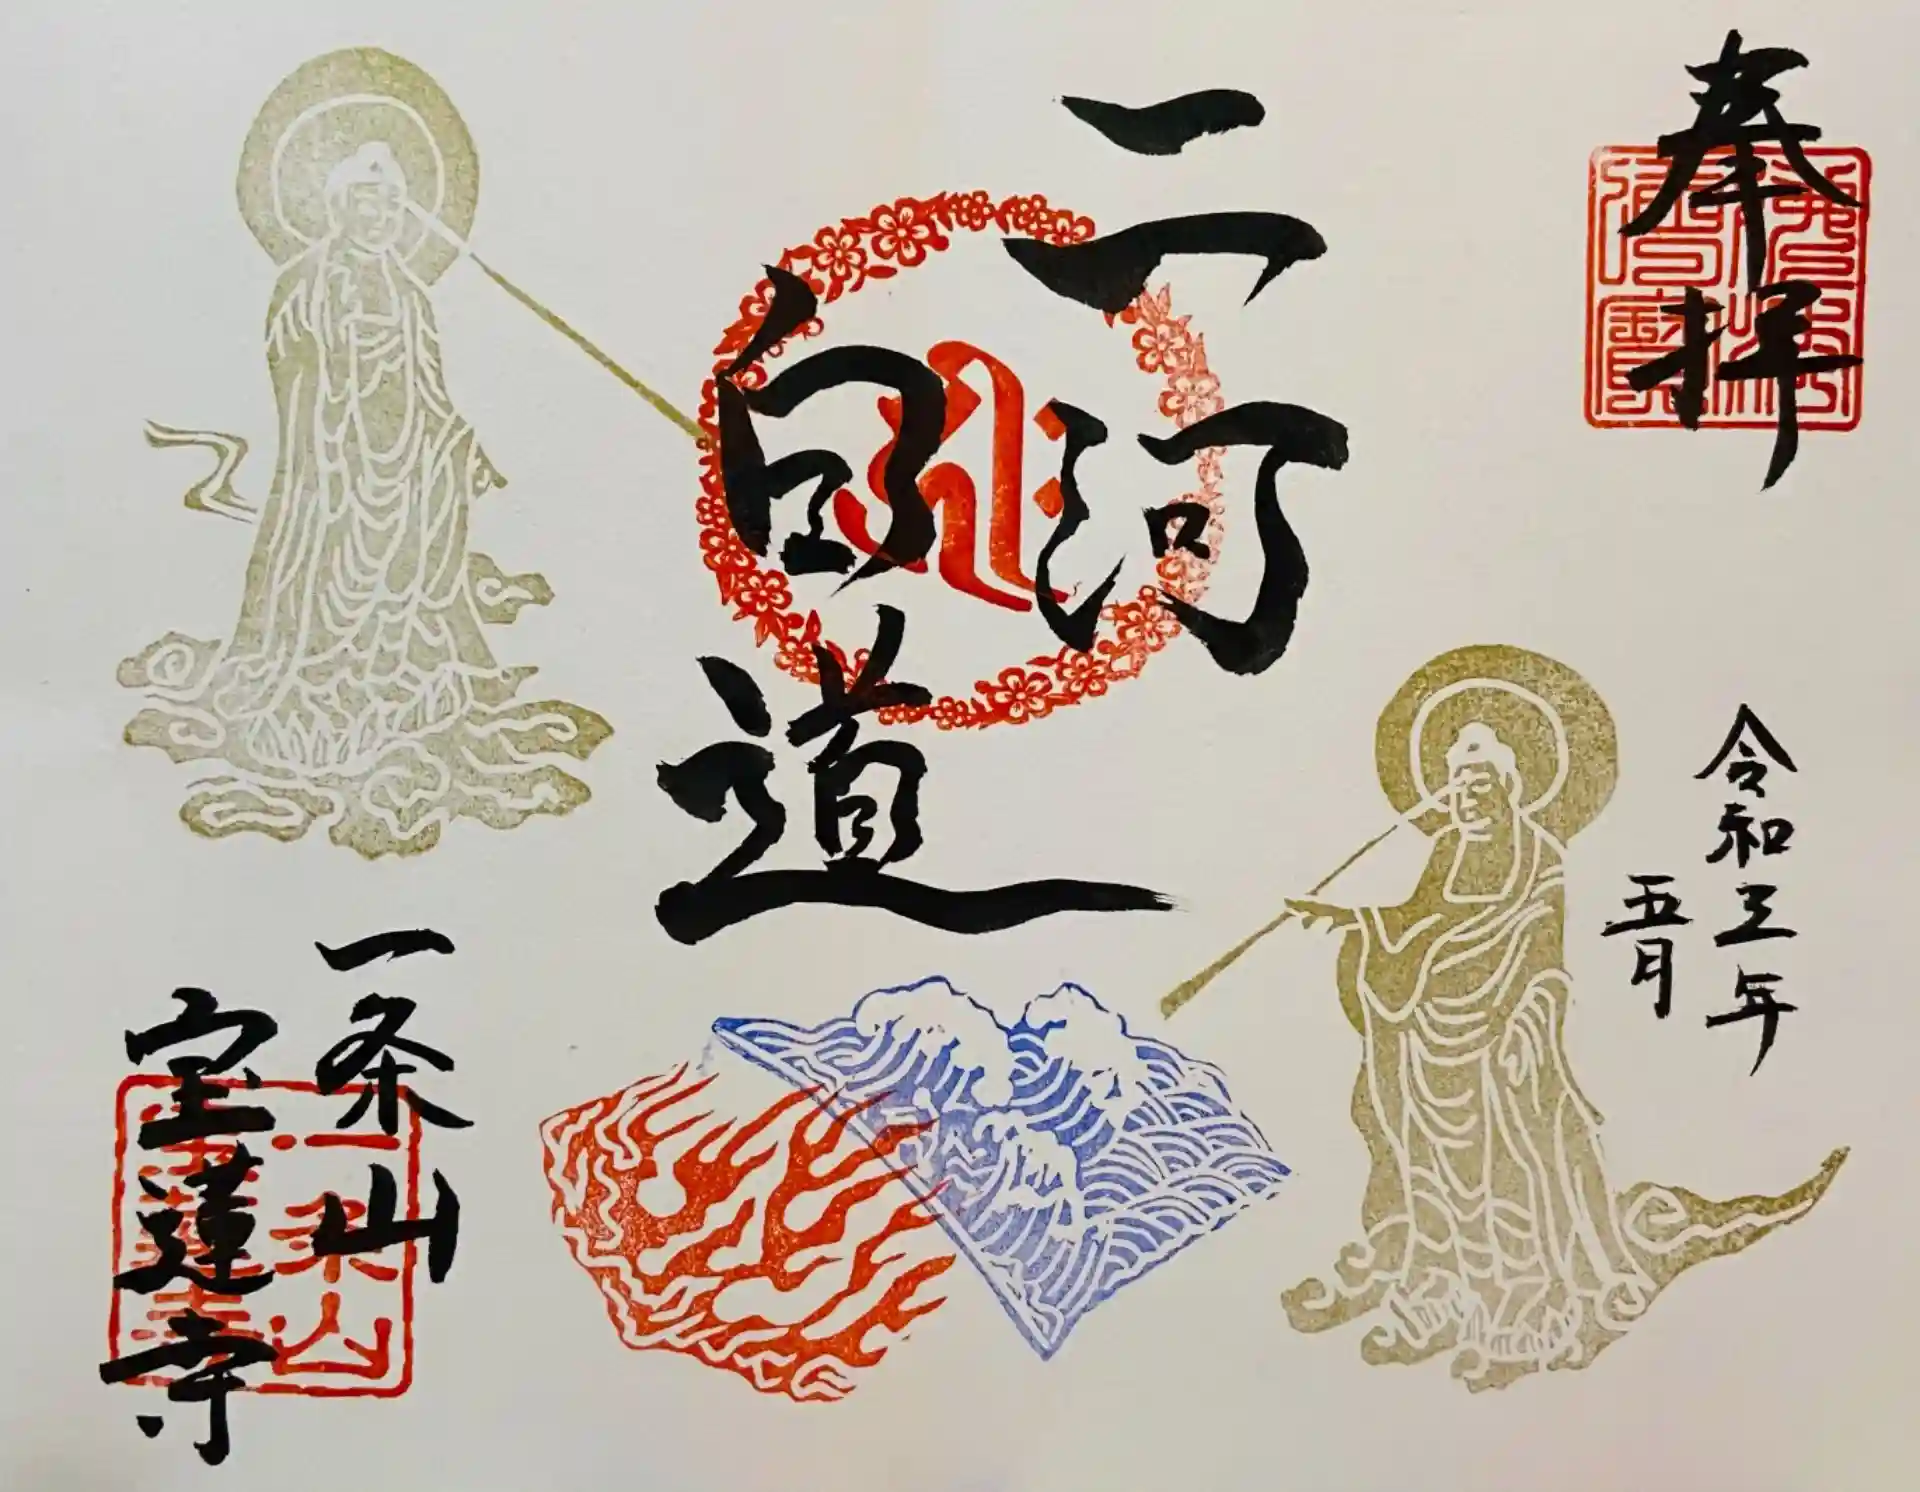 奉拝
二河
白道
令和三年
五月
一条山
宝蓮寺
一条山